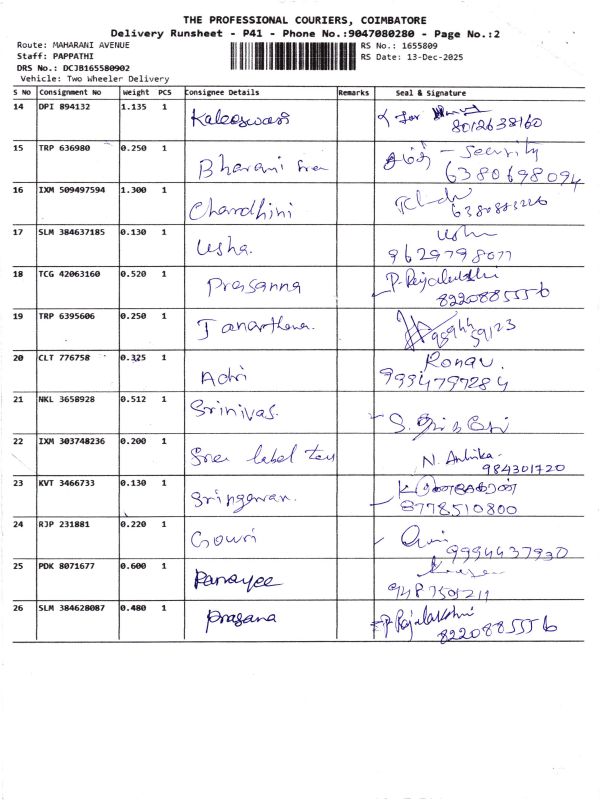 THE PROFESSIONAL COURIERS, COIMBATORE
Delivery Runsheet - P41 - Phone No.:9047080280 - Page No.:2
Route: MAHARANI AVENUE RS No.: 1655809
Staff: PAPPATHI RS Date: 13-Dec-2025
DRS No.: DCJB165580902
Vehicle: Two Wheeler Delivery
S No Consignment No Weight PCS Consignee Details Remarks Seal & Signature
14 DPI 894132 1.135 1 Kaleeswari for
8012638160
15 TRP 636980 0.250 1 Bharani Sree - Security
6380698094
16 IXM 509497594 1.300 1 Chandhini
17 SLM 384637185 0.130 1 Usha. Usha
9629798077
18 TCG 42063160 0.520 1 Prasanna P. Rajalakshmi
8220885556
19 TRP 6395606 0.250 1 Janarthana.
20 CLT 776758 0.325 1 Adri Ronav.
9994797284
21 NKL 3658928 0.512 1 Srinivas.
22 IXM 303748236 0.200 1 Sree label tex N. Ambika
984301720
23 KVT 3466733 0.130 1 Sringavan. குணசேகரன்
8778510800
24 RJP 231881 0.220 1 Gowri
9994437930
25 PDK 8071677 0.600 1 Panayee
9487501211
26 SLM 384628087 0.480 1 Prasana P. Rajalakshmi
8220885556